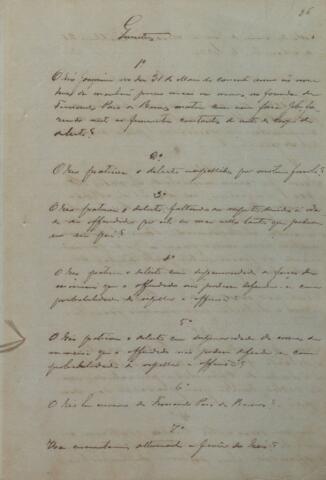 26
Quesitos
1º
O Réo no dia 31 de Maio do corrente anno as nove
horas da manhã mais ou menos na fazenda de
Fernando Paes de Barros matou com uma faca
os ferimentos constantes do auto de corpo de
delicto?
2º
O Réo praticou o delicto impellido por motivo frivolo?
3º
O Réo praticou o delicto faltando ao respeito devido a ida-
de do offendido por ser este mais velho tanto que podia
ser seu pai?
4º
O Réo praticou o delicto com superioridade de forças de
maneira que o offendido não podesse defender-se com
probabilidade de repellir a offensa?
5º
O Réo praticou o delicto com superioridade de armas de
maneira que o offendido não podesse defender-se com
probabilidade de repellir a offensa?
6º
O Réo he escravo de Fernando Paes de Barros?
7º
circunstancias attenuantes a favor do Réo?